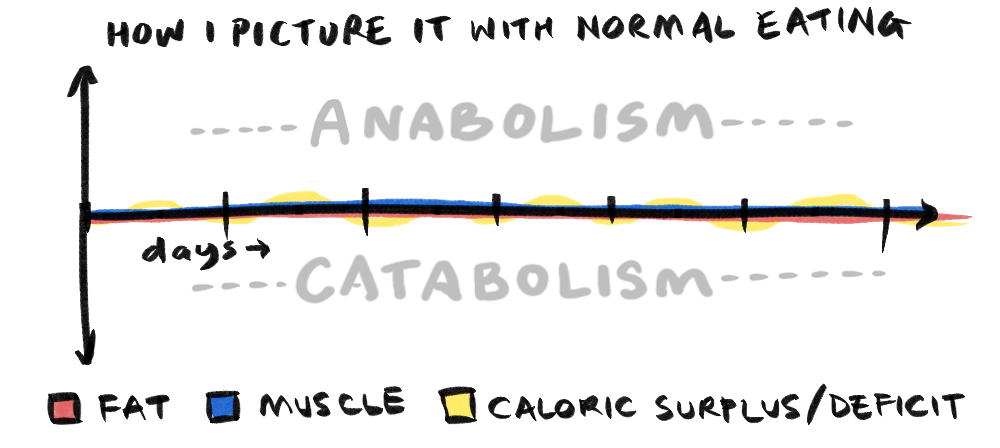 HOW I PICTURE IT WITH NORMAL EATING
ANABOLISM
days→
CATABOLISM
FAT MUSCLE CALORIC SURPLUS/DEFICIT